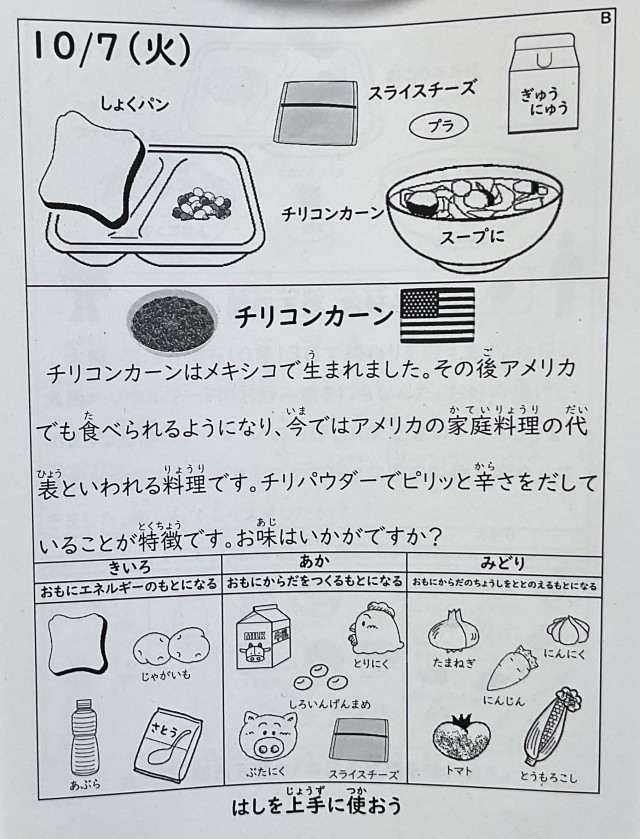 B
10/7(火)
しょくパン
スライスチーズ
プラ
ぎゅう
にゅう
チリコンカーン
スープに
チリコンカーン
チリコンカーンはメキシコで生まれました。その後アメリカ
でも食べられるようになり、今ではアメリカの家庭料理の代
表といわれる料理です。チリパウダーでピリッと辛さをだして
いることが特徴です。お味はいかがですか?
きいろ
あか
みどり
おもにエネルギーのもとになる
おもにからだをつくるもとになる
おもにからだのちょうしをととのえるもとになる
じゃがいも
あぶら
さとう
MILK
とりにく
しろいんげんまめ
ぶたにく
スライスチーズ
たまねぎ
にんにく
にんじん
トマト
とうもろこし
はしを上手に使おう